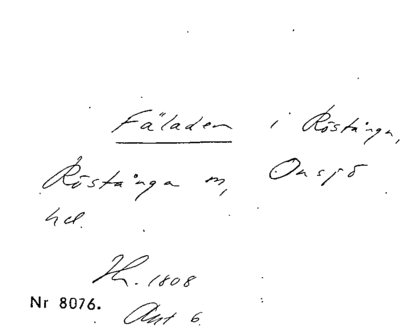 Fäladen i Röstånga,
Röstånga m, Onsjö
hd.
Th. 1808
Nr 8076.
Akt 6